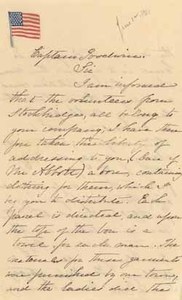 Captain Goodwin
Sir
I am informed
that the volunteers from
Stockbridge, all belong to
your company, I have
taken the liberty of
addressing to you (care of
Mr Abbott) a box, containing
clothing for them, which
you to distribute. Each
parcel is directed and upon
the top of the box is a
towel for each man. The
materials for these garments
was furnished by our town,
and the ladies did the